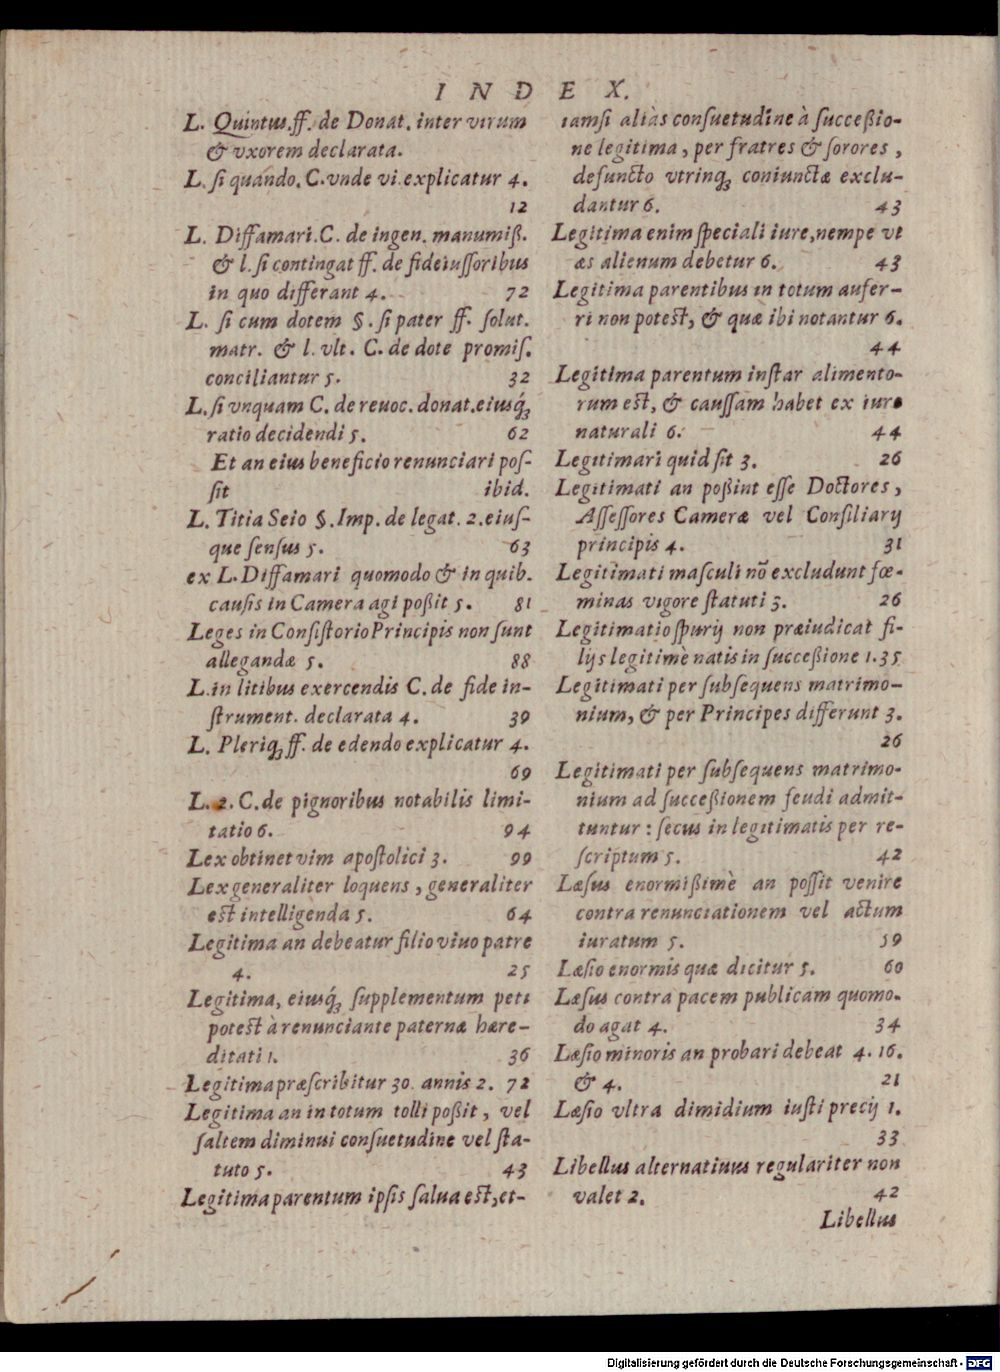 INDEX.
L. Quintus.ff. de Donat. inter virum
& vxorem declarata.
L. ſi quando. C. vnde vi explicatur 4.
12
L. Diffamari. C. de ingen. manumiß.
& l. ſi contingat ff. de fideiuſſoribus
in quo differant 4. 72
L. ſi cum dotem §. ſi pater ff. ſolut.
matr. & l. vlt. C. de dote promiſ.
conciliantur 5. 32
L. ſi vnquam C. de reuoc. donat. eiusq́;
ratio decidendi 5. 62
Et an eius beneficio renunciari poſ-
ſit ibid.
L. Titia Seio §. Imp. de legat. 2. eiuſ-
que ſenſus 5. 63
ex L. Diffamari quomodo & in quib.
cauſis in Camera agi poßit 5. 81
Leges in Conſiſtorio Principis non ſunt
allegandæ 5. 88
L. in litibus exercendis C. de fide in-
ſtrument. declarata 4. 39
L. Pleriq; ff. de edendo explicatur 4.
69
L. 2. C. de pignoribus notabilis limi-
tatio 6. 94
Lex obtinet vim apoſtolici 3. 99
Lex generaliter loquens, generaliter
eſt intelligenda 5. 64
Legitima an debeatur filio viuo patre
4. 25
Legitima, eiusq́; ſupplementum peti
poteſt à renunciante paternæ hære-
ditati 1. 36
Legitima præſcribitur 30. annis 2. 72
Legitima an in totum tolli poßit, vel
ſaltem diminui conſuetudine vel ſta-
tuto 5. 43
Legitima parentum ipſis ſalua eſt, et-
iamſi aliàs conſuetudine à ſucceßio-
ne legitima, per fratres & ſorores,
defuncto vtrinq; coniunctæ exclu-
dantur 6. 43
Legitima enim ſpeciali iure, nempe vt
æs alienum debetur 6. 43
Legitima parentibus in totum aufer-
ri non poteſt, & quæ ibi notantur 6.
44
Legitima parentum inſtar alimento-
rum eſt, & cauſſam habet ex iure
naturali 6. 44
Legitimari quid ſit 3. 26
Legitimati an poßint eſſe Doctores,
Aſſeſſores Cameræ vel Conſiliarij
principis 4. 31
Legitimati maſculi nō excludunt fœ-
minas vigore ſtatuti 3. 26
Legitimatio ſpurij non præiudicat fi-
lijs legitimè natis in ſucceßione 1. 35
Legitimati per ſubſequens matrimo-
nium, & per Principes differunt 3.
26
Legitimati per ſubſequens matrimo-
nium ad ſucceßionem feudi admit-
tuntur: ſecus in legitimatis per re-
ſcriptum 5. 42
Læſus enormißimè an poſſit venire
contra renunciationem vel actum
iuratum 5. 59
Læſio enormis quæ dicitur 5. 60
Læſus contra pacem publicam quomo-
do agat 4. 34
Læſio minoris an probari debeat 4. 16.
& 4. 21
Læſio vltra dimidium iuſti precij 1.
33
Libellus alternatiuus regulariter non
valet 2. 42
Libellus
Digitalisierung gefördert durch die Deutsche Forschungsgemeinschaft - DFG